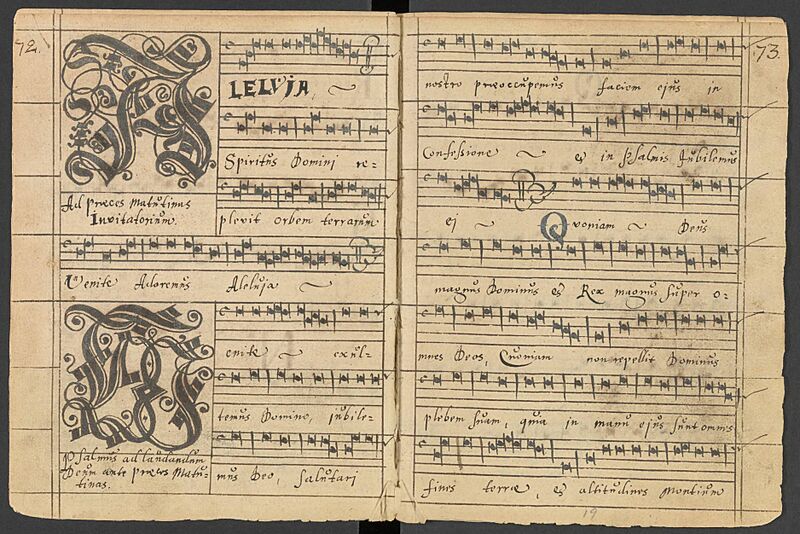 72.
LELUJA
Spiritus Domini re-
Ad Præces Matutinas
Invitatorium.
plevit orbem terrarum
Venite Adoremus Aleluja
enite exul-
temus Domino, jubile-
Psalmus ad laudandum
Deum ante Præces Matu-
tinas.
mus Deo, Salutari
73.
nostro præoccupemus faciem ejus in
Confessione et in Psalmis Jubilemus
ei Quoniam Deus
magnus Dominus et Rex magnus super o-
mnes Deos, Quoniam non repellit Dominus
plebem suam, quia in manu ejus sunt omnes
fines terræ, et altitudines montium
19